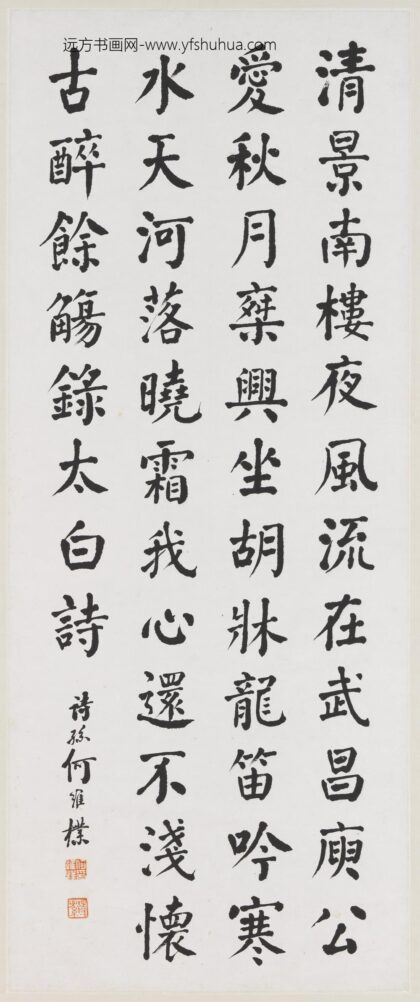 远方书画网-www.yfshuhua.com
清景南樓夜風流在武昌庾公
愛秋月椉興坐胡牀龍笛吟寒
水天河落曉霜我心還不淺懷
古醉餘觴錄太白詩
詩孫何維樸